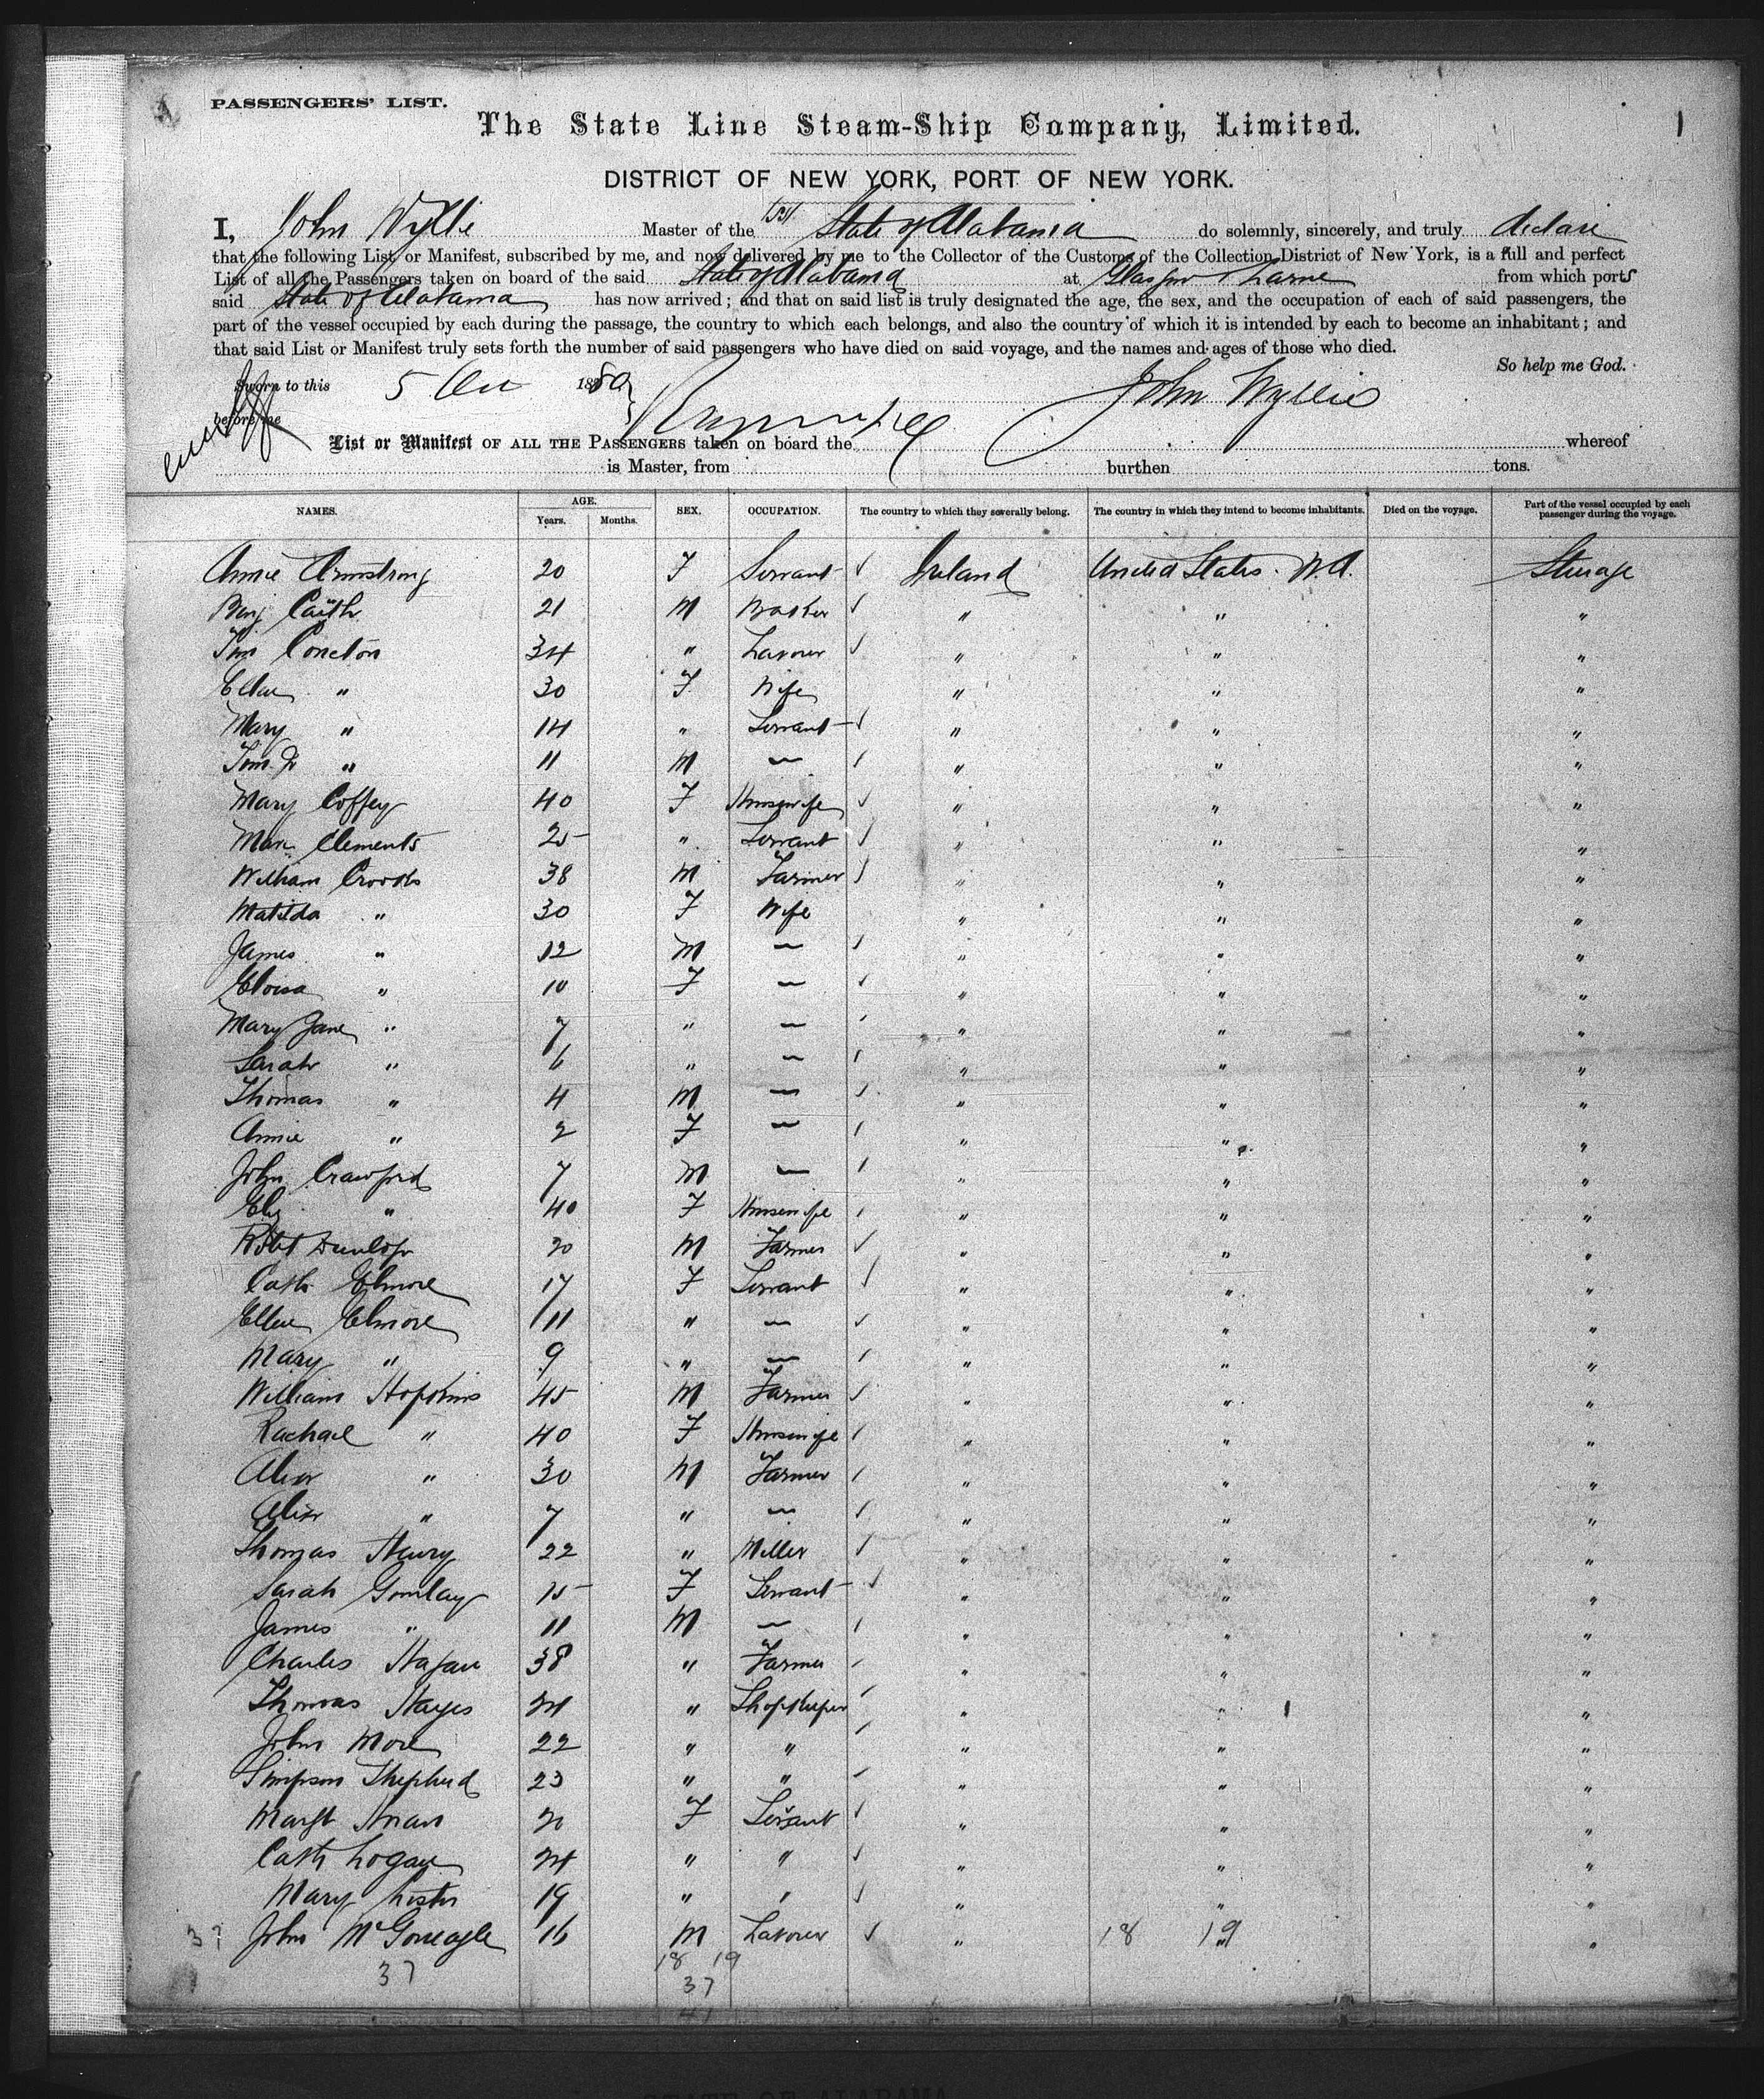 PASSENGERS' LIST.
1
The State Line Steam-Ship Company, Limited.
DISTRICT OF NEW YORK, PORT OF NEW YORK.
I, John Wyllie Master of the SS State of Alabama do solemnly, sincerely, and truly declare
that the following List or Manifest, subscribed by me, and now delivered by me to the Collector of the Customs of the Collection District of New York, is a full and perfect
List of all the Passengers taken on board of the said State of Alabama at Glasgow & Larne from which ports
said State of Alabama has now arrived; and that on said list is truly designated the age, the sex, and the occupation of each of said passengers, the
part of the vessel occupied by each during the passage, the country to which each belongs, and also the country of which it is intended by each to become an inhabitant; and
that said List or Manifest truly sets forth the number of said passengers who have died on said voyage, and the names and ages of those who died.
So help me God.
Sworn to this 5 188
before me John Wyllie
List or Manifest OF ALL THE PASSENGERS taken on board the whereof
is Master, from burthen tons.
NAMES. AGE. Years. Months. SEX. OCCUPATION. The country to which they severally belong. The country in which they intend to become inhabitants. Died on the voyage. Part of the vessel occupied by each passenger during the voyage.
Annie Armstrong 20 F Servant Ireland United States. N.A. Steerage
Benj 21 M " " "
Tim Concton 34 " Laborer " " "
Ellen " 30 F Wife " " "
Mary " 14 " Servant " " "
Tim Jr " 11 M — " " "
Mary Coffey 40 F Housewife " " "
Mary Clements 25 " Servant " " "
William Crooks 38 M Farmer " " "
Matilda " 30 F Wife " " "
James " 12 M — " " "
Eloisa " 10 F — " " "
Mary Jane " 7 " — " " "
Sarah " 6 " — " " "
Thomas " 4 M — " " "
Annie " 2 F — " " "
John Crawford 7 M — " " "
Eliz " 40 F Housewife " " "
Robt Dunlop 20 M Farmer " " "
Cath Elmore 17 F Servant " " "
Ellen Elmore 11 " — " " "
Mary " 9 " — " " "
William Hopkins 45 M Farmer " " "
Rachael " 40 F Housewife " " "
Alexr " 30 M Farmer " " "
Alexr " 7 " — " " "
Thomas Henry 22 " Miller " " "
Sarah Gourlay 15 F Servant " " "
James " 11 M — " " "
Charles Hagan 38 " Farmer " " "
Thomas Hayes 24 " Shopkeeper " " "
John More 22 " " " " "
Simpson Shepherd 23 " " " " "
Margt 20 F Servant " " "
Cath Logan 24 " " " " "
Mary Lester 19 " " " " "
37 John McGoneagle 16 M Laborer " 18 19 "
37 18 19
37
41